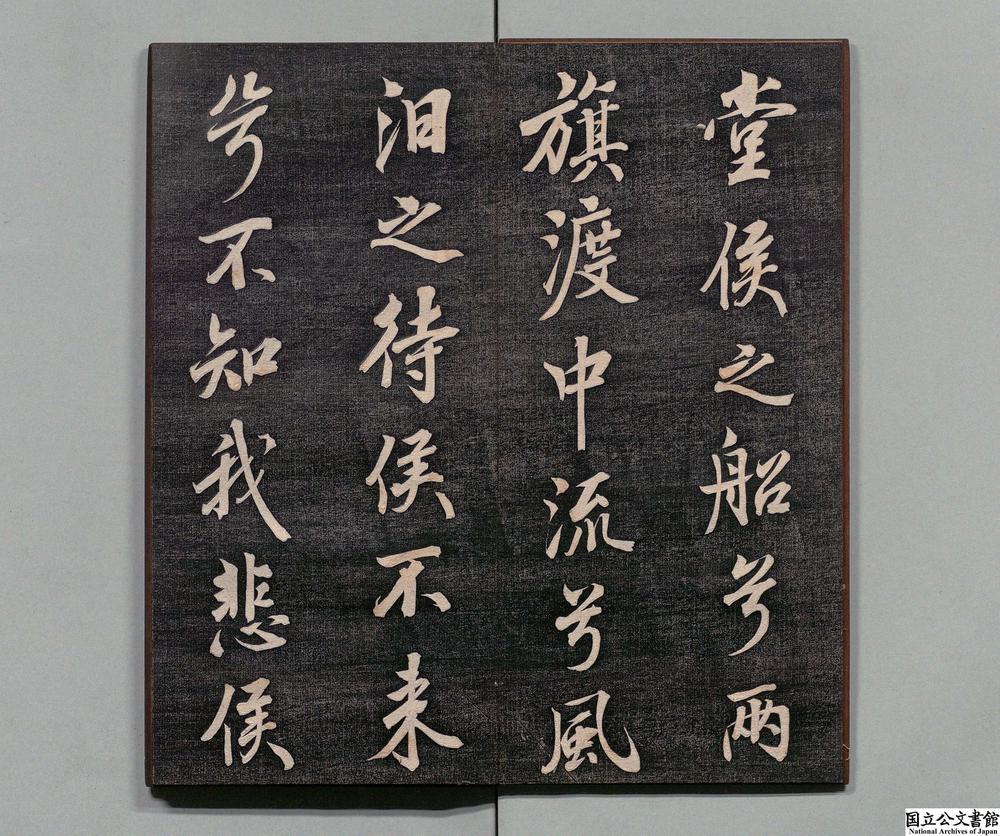 堂侯之船兮兩
旗渡中流兮風
汨之待侯不来
兮不知我悲侯
国立公文書館
National Archives of Japan